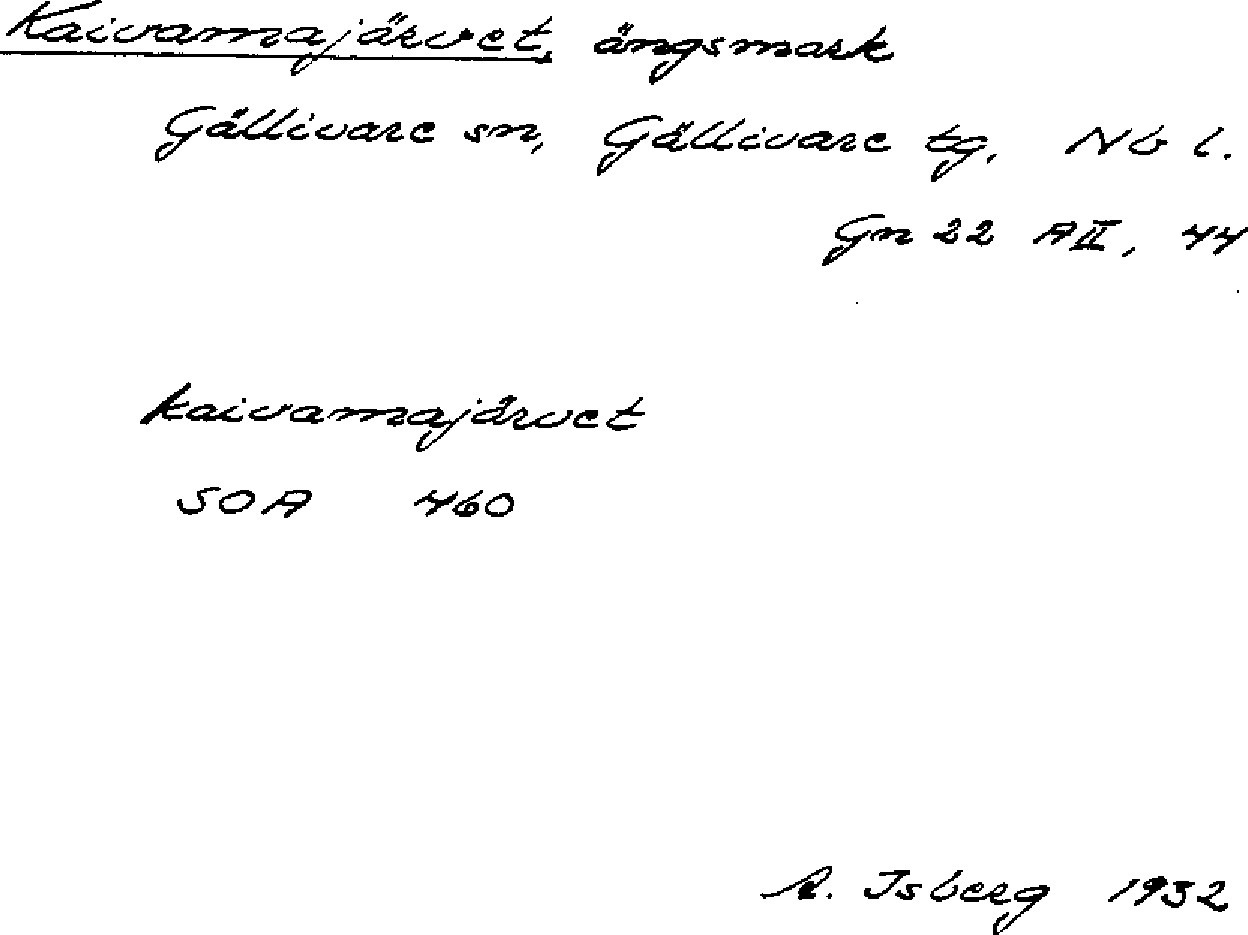 Kaivamajärvet, ängsmark
Gällivare sn, Gällivare tg, Nb l.
Gn 22 AII, 44
kaivamajärvet
SOA 460
A. Isberg 1932